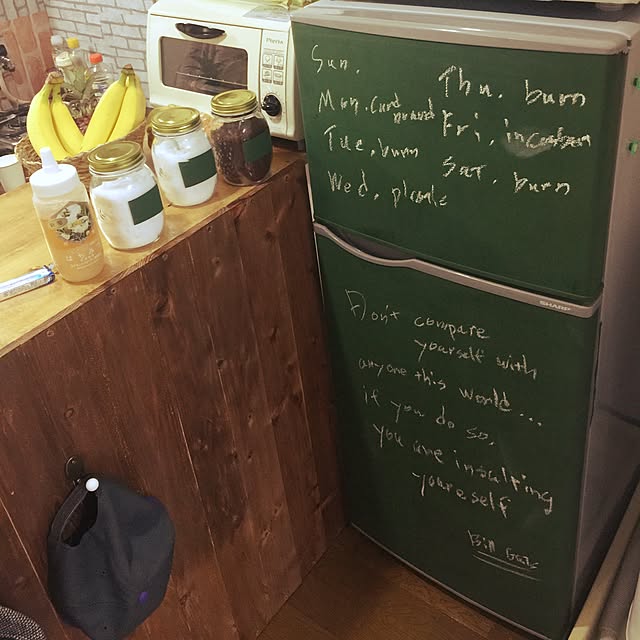 Sun.
Mon.
Tue. burn
Wed.
Thu. burn
Fri.
Sat. burn
SHARP
Don't compare
yourself with
anyone this world...
if you do so,
you are insulting
youreself
Bill Gates